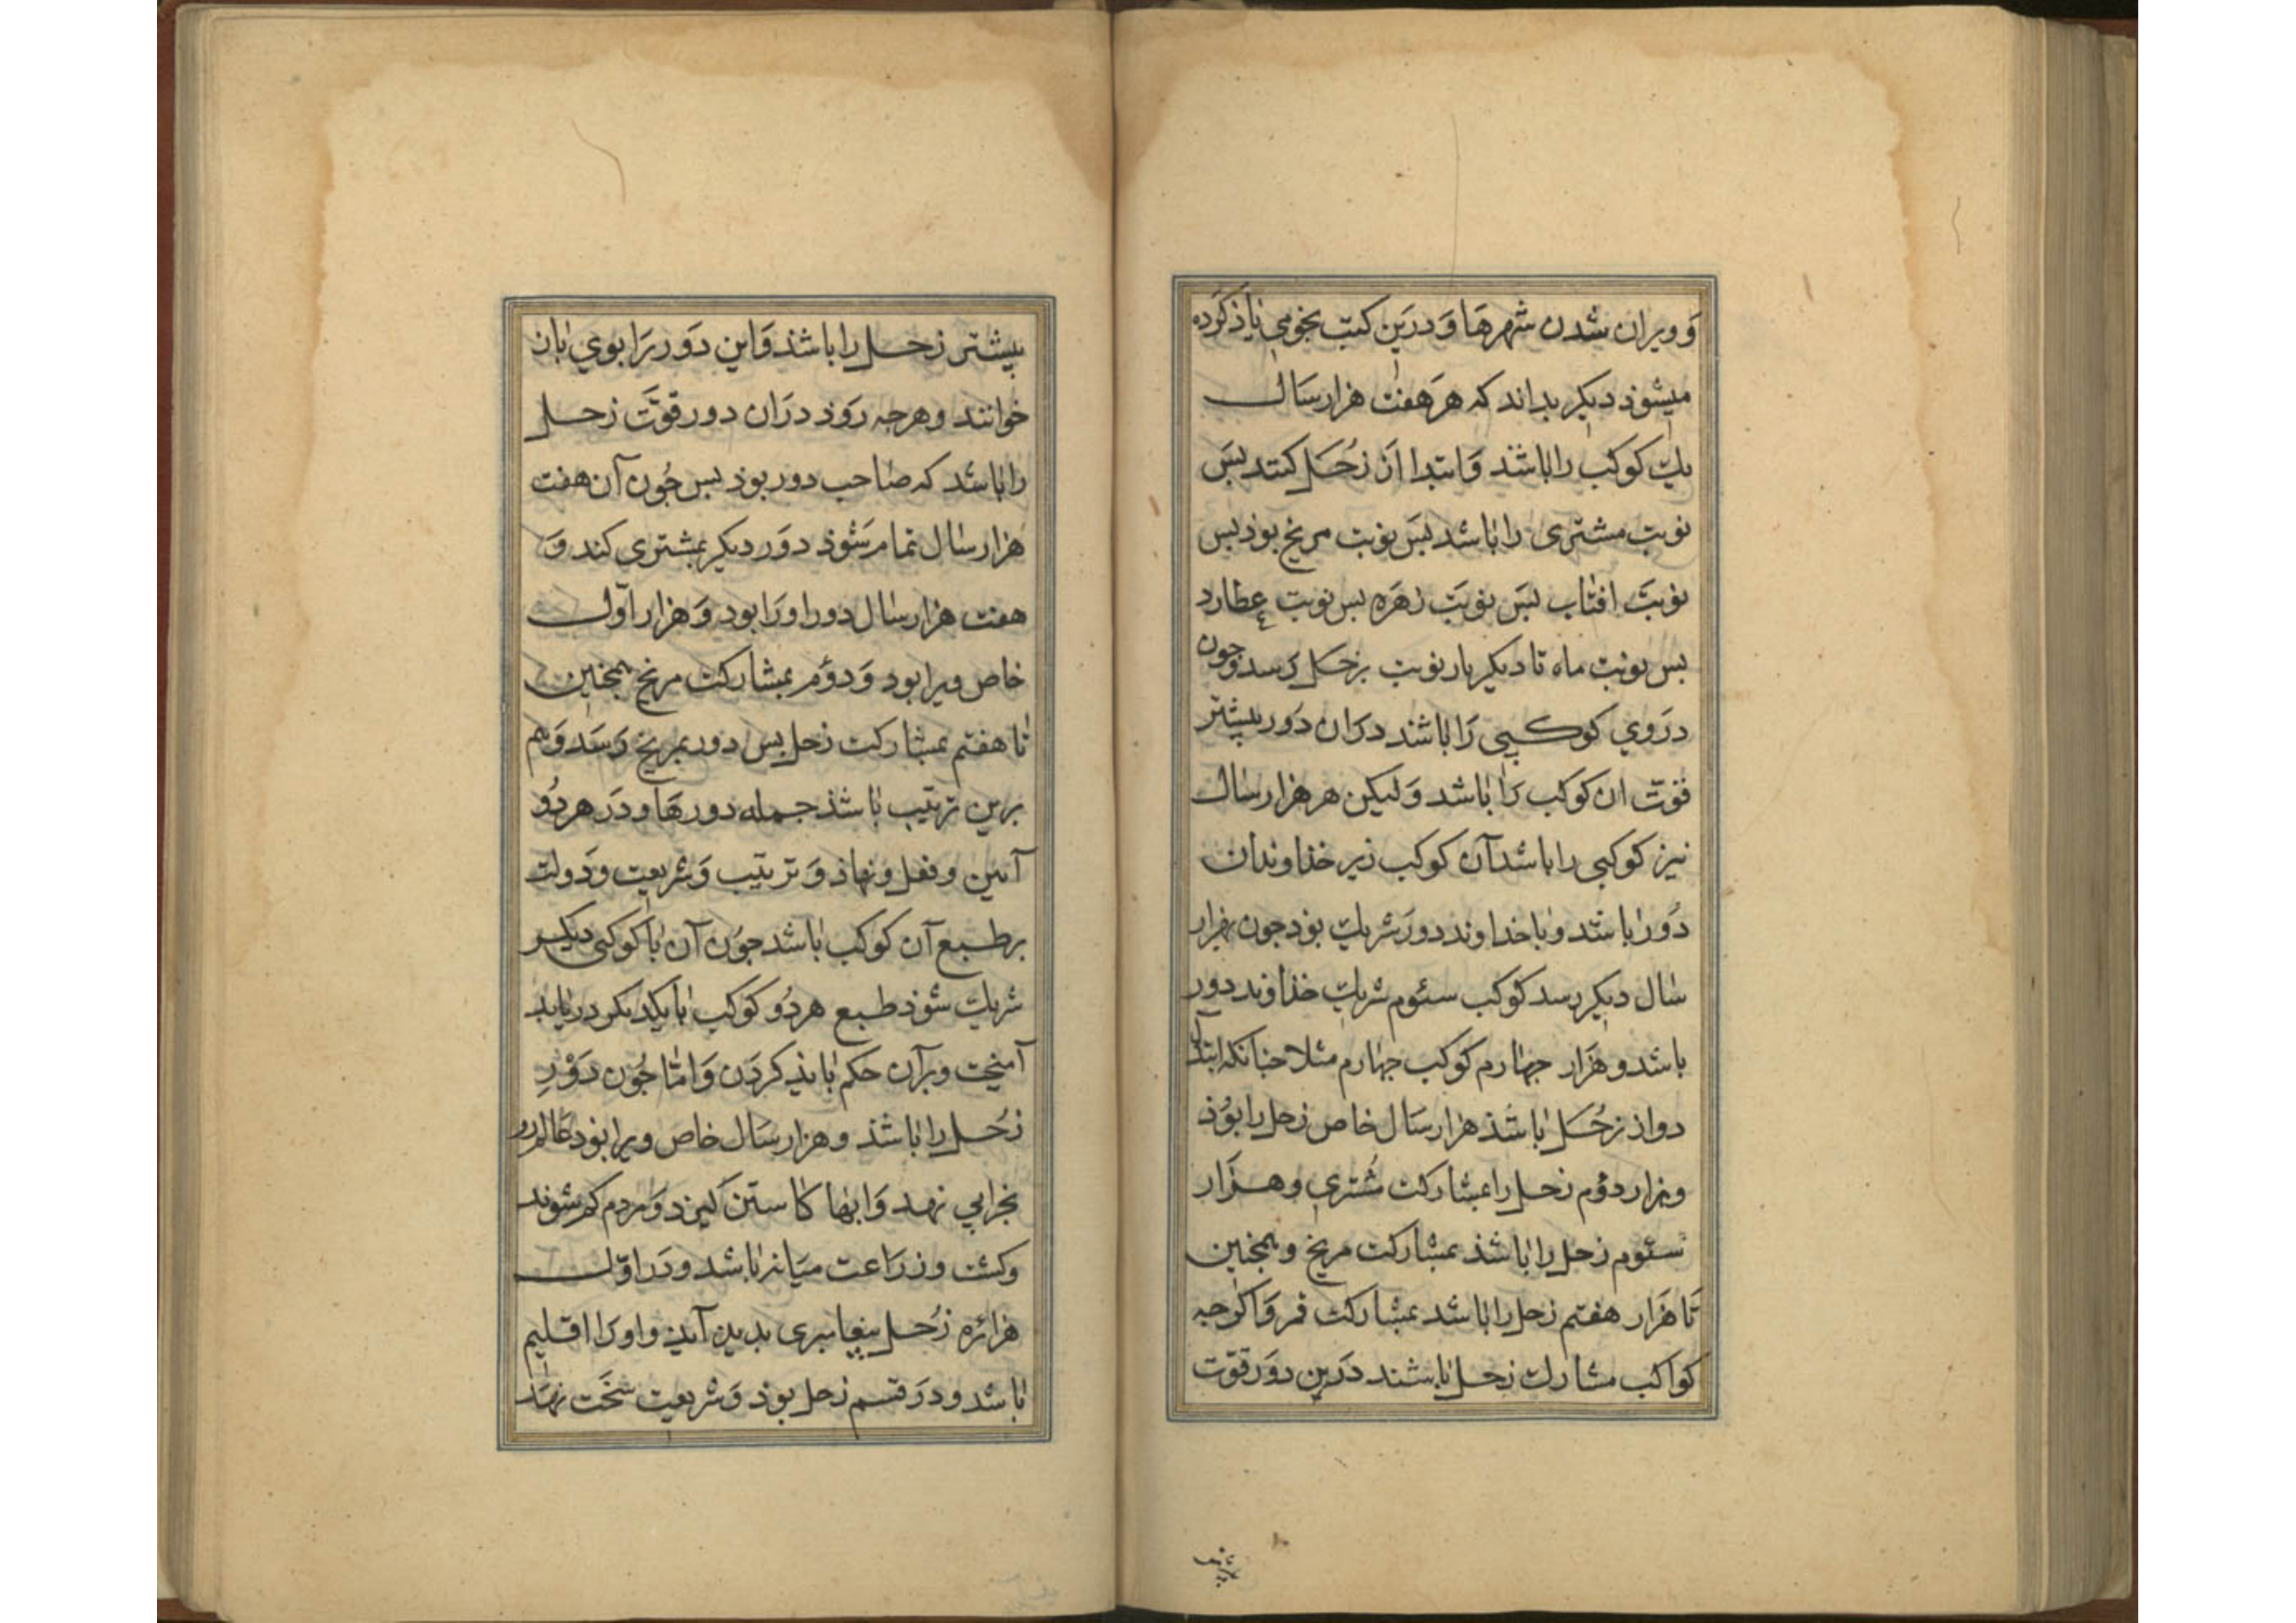 و ویران شدن شهرها و درین کتب نجومی یاذ کرده
میشوذ دیکر بداند که هر هفت هزار سال
یک کوکب را باشد و ابتدا از زحل کنند بس
نوبت مشتری را باشد بس نوبت مریخ بوذ بس
نوبت افتاب بس نوبت زهره بس نوبت عطارد
بس نوبت ماه تا دیکر بار نوبت بزحل رسد و جون
دروی کوکبی را باشند دران دور بیشتر
قوت ان کوکب را باشد و لیکن هر هزار سال
نیز کوکبی را باشد آن کوکب زیر خذاوندان
دور باشد و با خداوند دور شریک بود جون بهزار
سال دیکر رسد کوکب سئوم شریک خذاوند دور
باشد و هزار جهارم کوکب جهارم مثلا جنانکه ابتدا
دواز زحل باشذ هزار سال خاص زحل را بوذ
و هزار دوم زحل را بمشارکت مشتری و هزار
سئوم زحل را باشذ بمشارکت مریخ و همجنین
تا هزار هفتم زحل را باشد بمشارکت قمر و اکرجه
کواکب مشارک زحل باشند درین دور قوت
بیشتر زحل را باشذ و این دور را بوی باز
خوانند و هرجه روذ دران دور قوت زحل
را باشد که صاحب دور بوذ بس جون آن هفت
هزار سال تمام شوذ دور دیکر بمشتری کند و
هفت هزار سال دور او را بود و هزار اول
خاص ویرا بود و دوم بمشارکت مریخ همجنین
تا هفتم بمشارکت زحل بس دور بمریخ رسد و هم
برین ترتیب باشذ جمله دورها و در هر دو
آیین و فعل و نهاذ و ترتیب و شریعت و دولت
بر طبع آن کوکب باشد جون آن با کوکبی دیکر
شریک شوذ طبع هر دو کوکب با یکدیکر در باید
آمیخت و بران حکم بایذ کردن و اما جون دور
زحل را باشذ و هزار سال خاص ویرا بوذ عالم رو
بخرابی نهد و ابها کاستن کیرد و مردم کم شوند
و کشت و زراعت میانه باشد و در اول
هزاره زحل بیغامبری بدید آید و او را اقلیم
باشد و در قسم زحل بوذ و شریعت سخت نهد